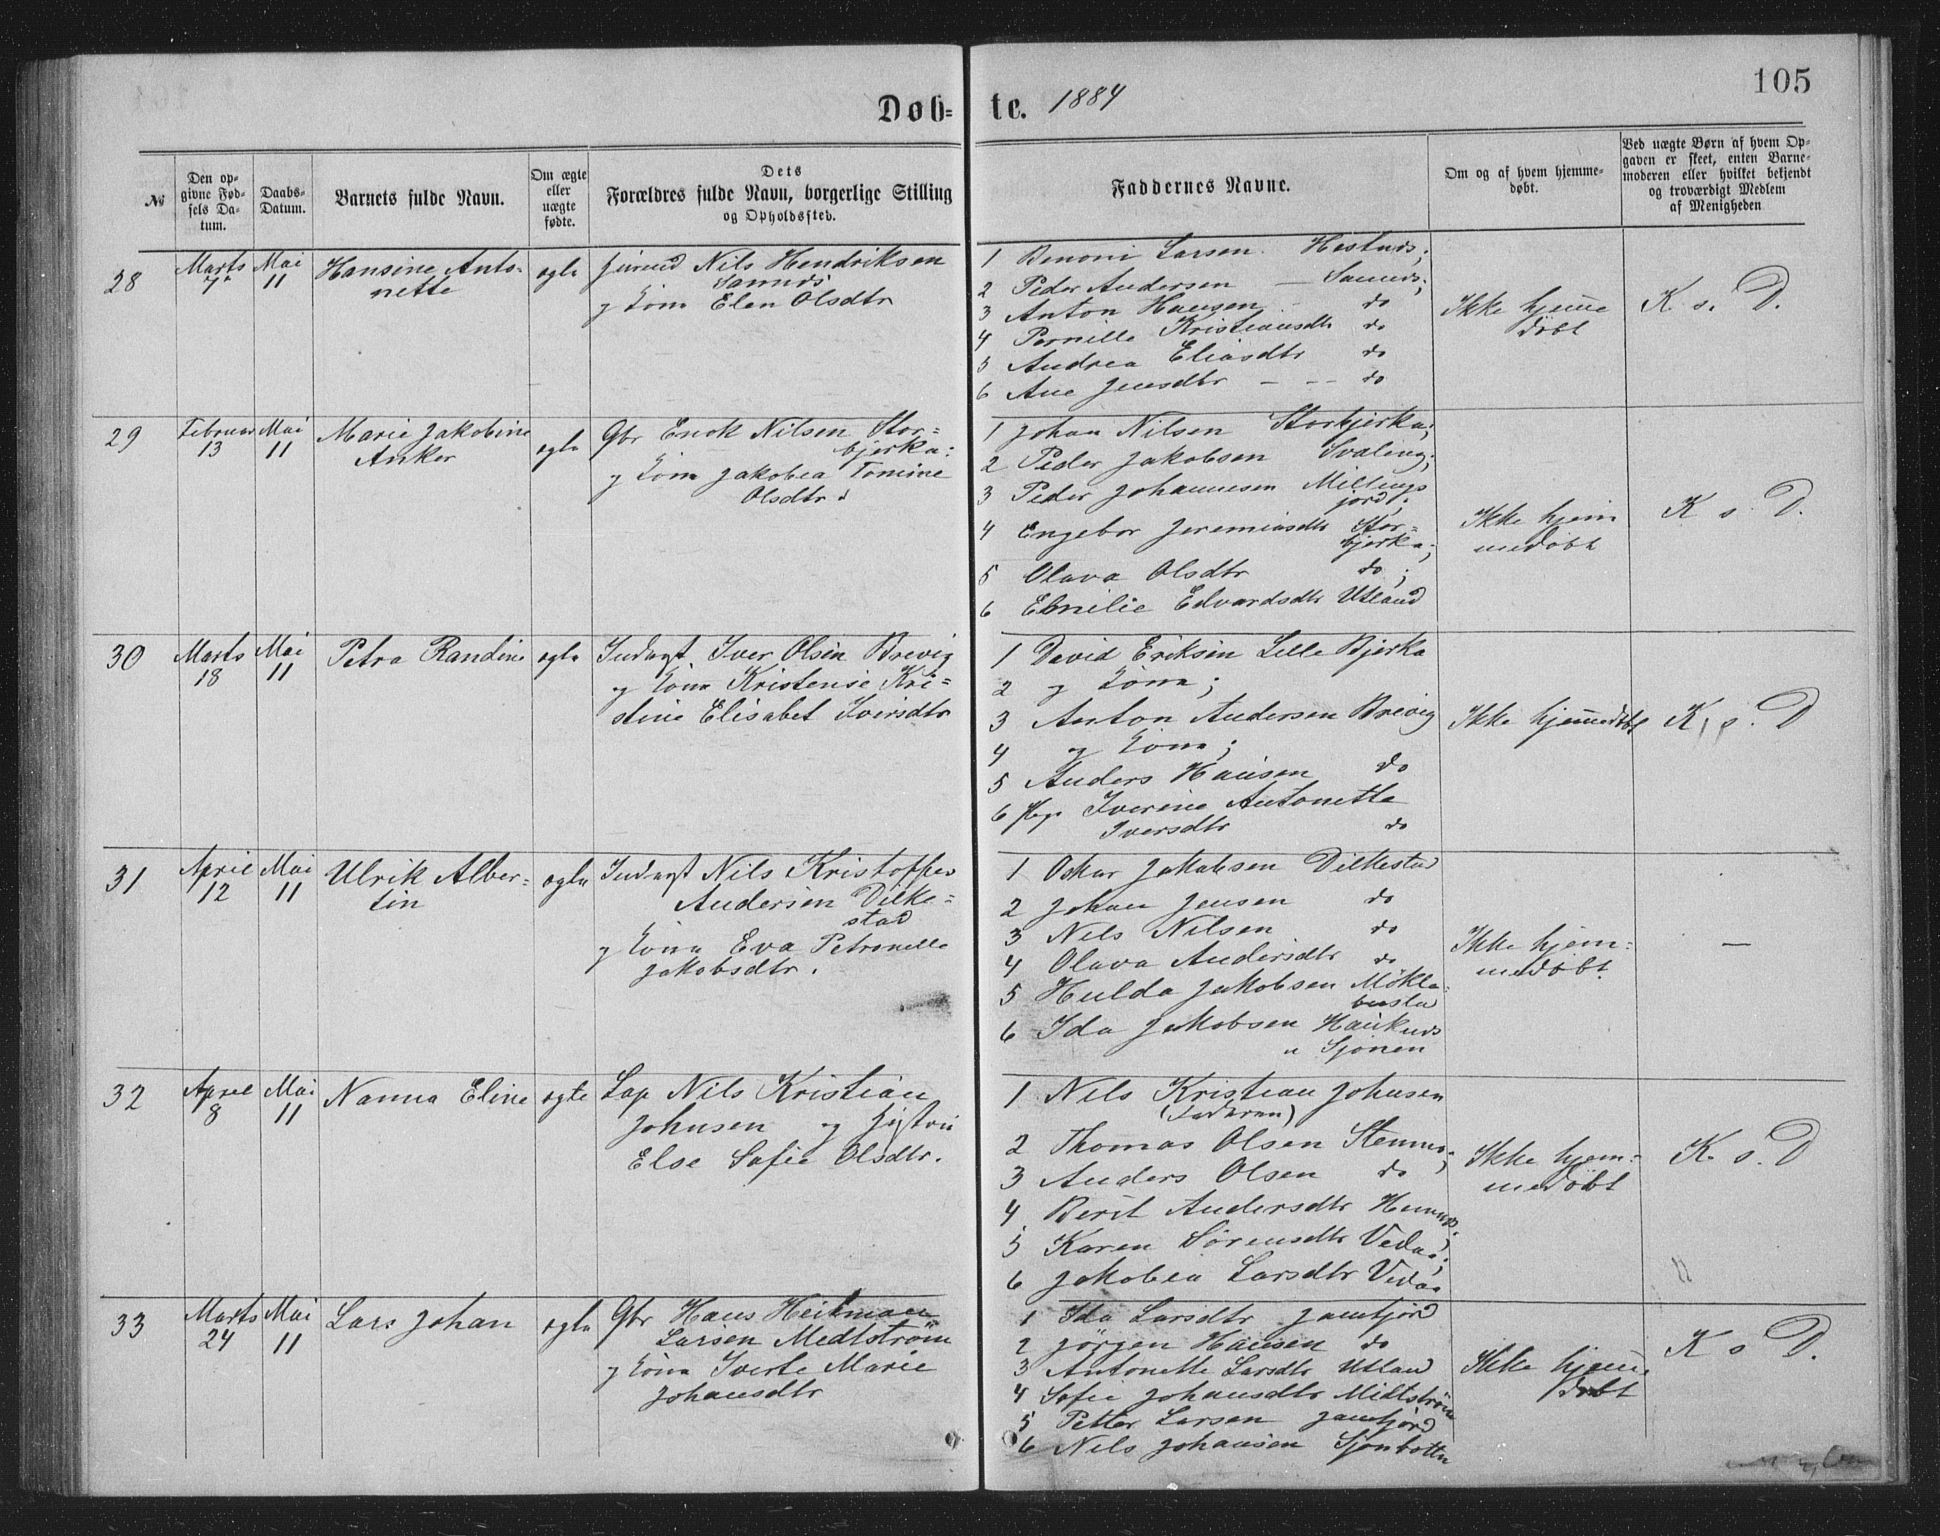 105
Døb= te. 1884
№
Den op=
givne Fød=
sels Da=
tum.
Daabs=
Datum.
Barnets fulde Navn.
Om ægte
eller
uægte
fødte.
Dets
Forældres fulde Navn, borgerlige Stilling
og Opholdssted.
Faddernes Navne.
Om og af hvem hjemme=
døbt.
Ved uægte Børn af hvem Op=
gaven er skeet, enten Barne=
moderen eller hvilket bekjendt
og troværdigt Medlem
af Menigheden
28
Marts
7
Mai
11
Hansine Anto=
nette
ægte
Nils Hendriksen
og Kona Elen Olsdtr
1 Benoni Larsen Hestnes;
2 Peder Andersen — Sannes;
3 Anton Hansen - do
4 Pernille Kristiansdtr do
5 Andrea Eliasdtr do
6 Ane Jensdtr - -- do
Ikke hjemme
døbt
K s. D.
29
Februar
13
Mai
11
Marie Jakobine
Anker
ægte
Gbr Enok Nilsen Stor=
bjerka:
og Kona Jakobea Tomine
Olsdtr
1 Johan Nilsen Storbjerka;
2 Peder Jakobsen Svaling;
3 Peder Johannesen Millings
jord;
4 Engebor Jeremiasdtr Stor=
bjerka;
5 Olava Olsdtr do;
6 Emilie Edvardsdtr Utland
Ikke hjem
medøbt
K s. D.
30
Marts
18
Mai
11
Petra Randine
ægte
Inderst Iver Olsen Brevig
og Kona Kristense Kri=
stine Elisabet Iversdtr
1 David Eriksen Lille Bjerka
2 og Kona;
3 Anton Andersen Brevig
4 og Kona;
5 Anders Hansen do
6 Pige Iverine Antonette
Iversdtr do
Ikke hjemmedøbt
K. s. D
31
April
12
Mai
11
Ulrik Alber=
tin
ægte
Inderst Nils Kristoffer
Andersen Dilke=
stad
og Kona Eva Petronelle
Jakobsdtr.
1 Oskar Jakobsen Dilkestad
2 Johan Jensen do
3 Nils Nilsen do
4 Olava Andersdtr do
5 Hulda Jakobsen Møkle=
busta
6 Ida Jakobsen Hauknes
Sjonen
Ikke hjem=
medøbt
—
32
April
8
Mai
11
Nanna Eline
ægte
Lap Nils Kristian
Johnsen og Hustru
Else Sofie Olsdtr.
1 Nils Kristian Johnsen
(Faderen)
2 Thomas Olsen Stennes;
3 Anders Olsen do
4 Berit Andersdtr
5 Karen Sørensdtr Vedaa;
6 Jakobea Larsdtr Vedaa
Ikke hjem=
medøbt
K. s. D
33
Marts
24
Mai
11
Lars Johan
ægte
Gbr Hans Heitmann
Larsen Medtstrøm
og Kona Iverte Marie
Johansdtr
1 Ida Larsdtr Jamtjord
2 Jørgen Hansen do
3 Antonette Larsdtr Utlan
4 Sofie Johansdtr Midtstrøm
5 Petter Larsen Jamtjord
6 Nils Johansen Sjonbotten
Ikke hjemme
døbt
K s D.